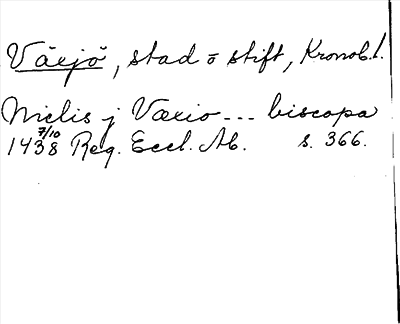 Växjö, stad o stift, Kronob. l.
Niclis j Vœxio --- biscopa
7/10
1438 Reg. Eccl. Ab. s. 366.